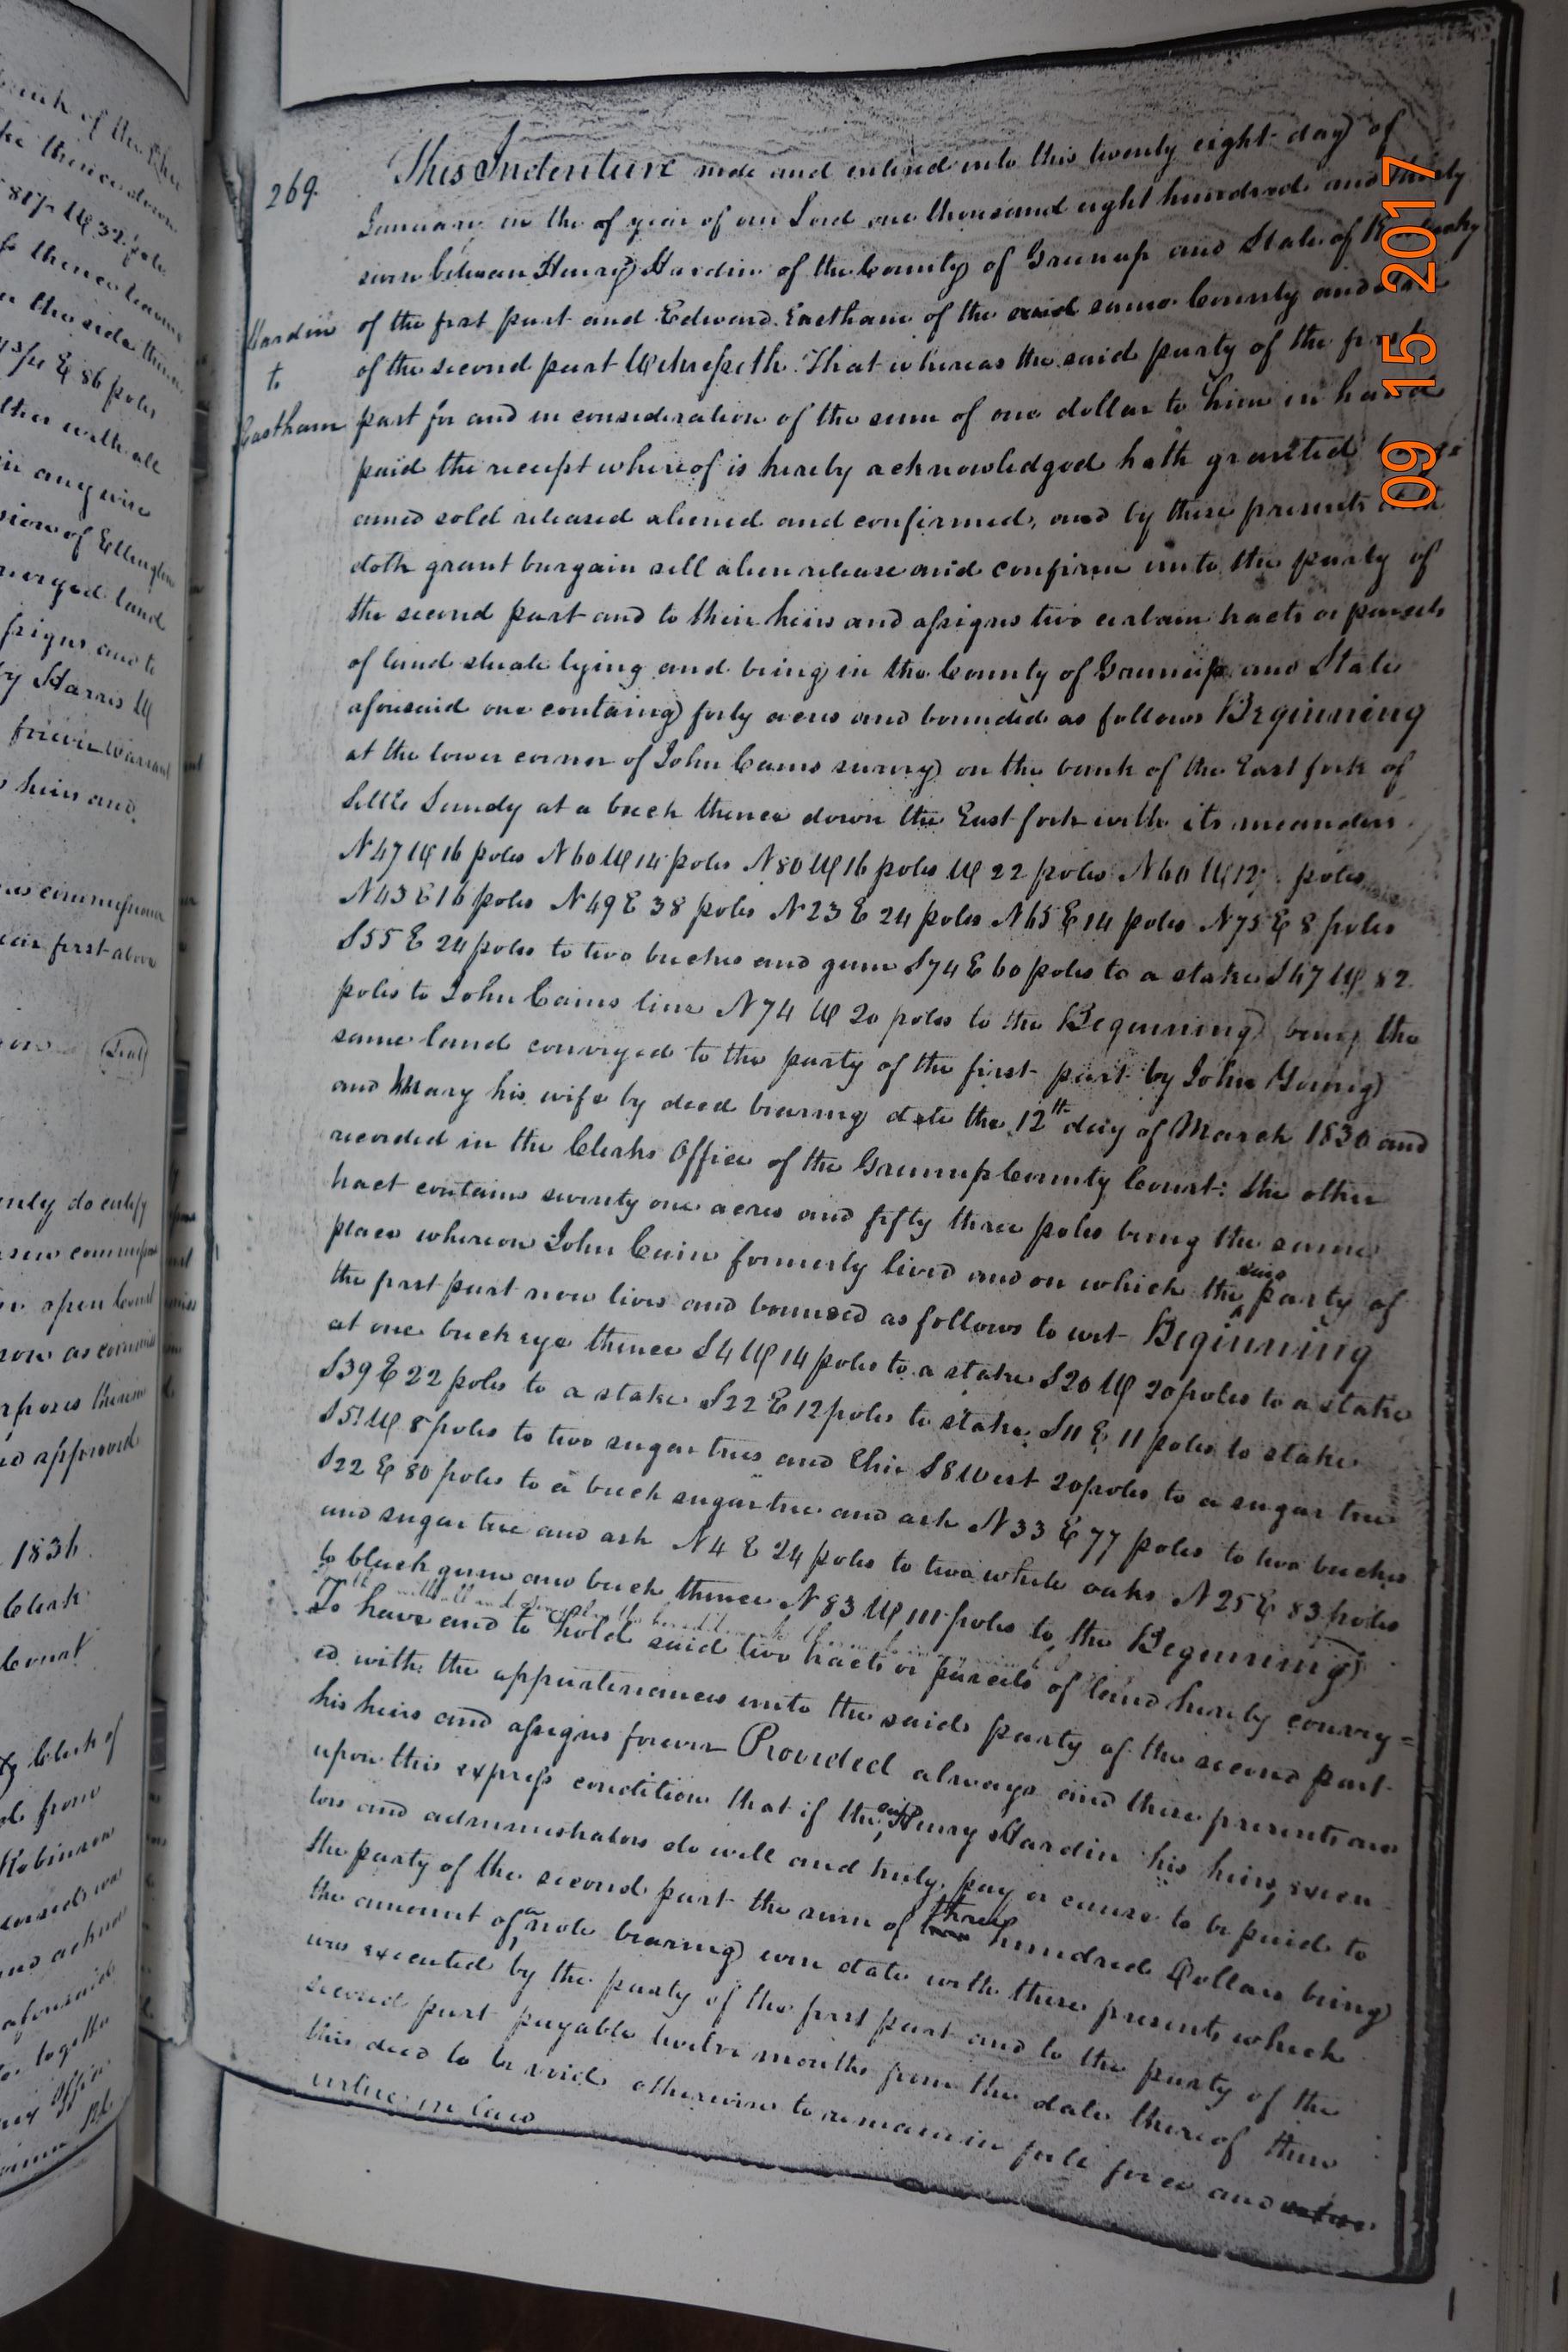 269
Hardin
to
Eastham
This Indenture made and entered into this twenty eight day of
January in the of year of our Lord one thousand eight hundred and thirty
seven between Henry Hardin of the County of Greenup and State of Kentucky
of the first part and Edward Eastham of the said same County and State
of the second part Witnesseth. That whereas the said party of the first
part for and in consideration of the sum of one dollar to him in hand
paid the receipt whereof is hereby acknowledged hath grantted
ained sold released aliened and confirmed, and by these presents
doth grant bargain sell alien release and confirm unto the party of
the second part and to their heirs and assigns two certain tracts or parcels
of land situate lying and being in the County of Greenup and State
aforesaid one containg forty acres and bounded as follows Beginning
at the lower corner of John Cains survey on the bank of the East fork of
Little Sandy at a beech thence down the East fork with its meanders
N 47 W 16 poles N 60 W 14 poles N 80 W 16 poles W 22 poles N 60 W 12 poles
N 43 E 16 poles N 49 E 38 poles N 23 E 24 poles N 65 E 14 poles N 75 E 8 poles
S 55 E 24 poles to two beeches and gum S 74 E 60 poles to a stake S 47 W 82
poles to John Cains line N 74 W 20 poles to the Beginning being the
same land conveyed to the party of the first part by John Young
and Mary his wife by deed bearing date the 12th day of March 1830 and
recorded in the Clerks Office of the Greenup County Court: the other
tract contains seventy one acres and fifty three poles being the same
place whereon John Cain formerly lived and on which the said party of
the first part now lives and bounded as follows to wit Beginning
at one buckeye thence S 4 W 14 poles to a stake S 20 W 20 poles to a stake
S 39 E 22 poles to a stake S 22 E 12 poles to stake S 11 E 11 poles to stake
S 51 W 8 poles to two sugar trees and Elm S 8 West 20 poles to a sugar tree
S 22 E 80 poles to a beech sugar tree and ash N 33 E 77 poles to two beeches
and sugar tree and ash N 4 E 24 poles to two white oaks N 25 E 83 poles
to black gum and beech thence N 83 W 111 poles to the Beginning
To have and to hold said two tracts or parcels of land hereby convey=
ed with the appurtenances unto the said party of the second part
his heirs and assigns forever Provided always and these presents are
upon this express condition that if the said Henry Hardin his heirs, execu
tors and administrators do well and truly, pay or cause to be paid to
the party of the second part the sum of three hundred Dollars being
the amount of a note bearing even date with these presents which
was executed by the party of the first part and to the party of the
second part payable twelve months from the date thereof then
this deed to be void otherwise to remain in full force and
virtue in law
09 15 2017